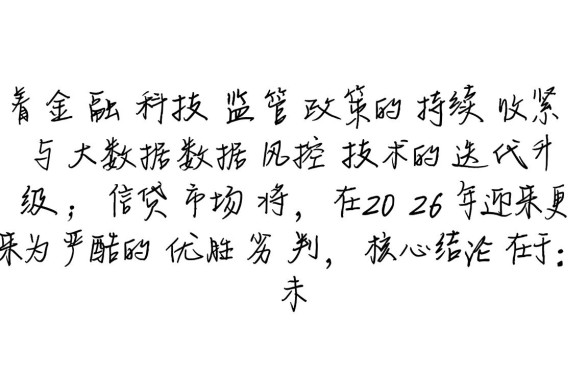 着金融科技监管政策的持续收紧
与大数据数据风控技术的迭代升
级；信贷市场将，在2026年迎来更
来为严酷的优胜劣判，核心结论在于：
未